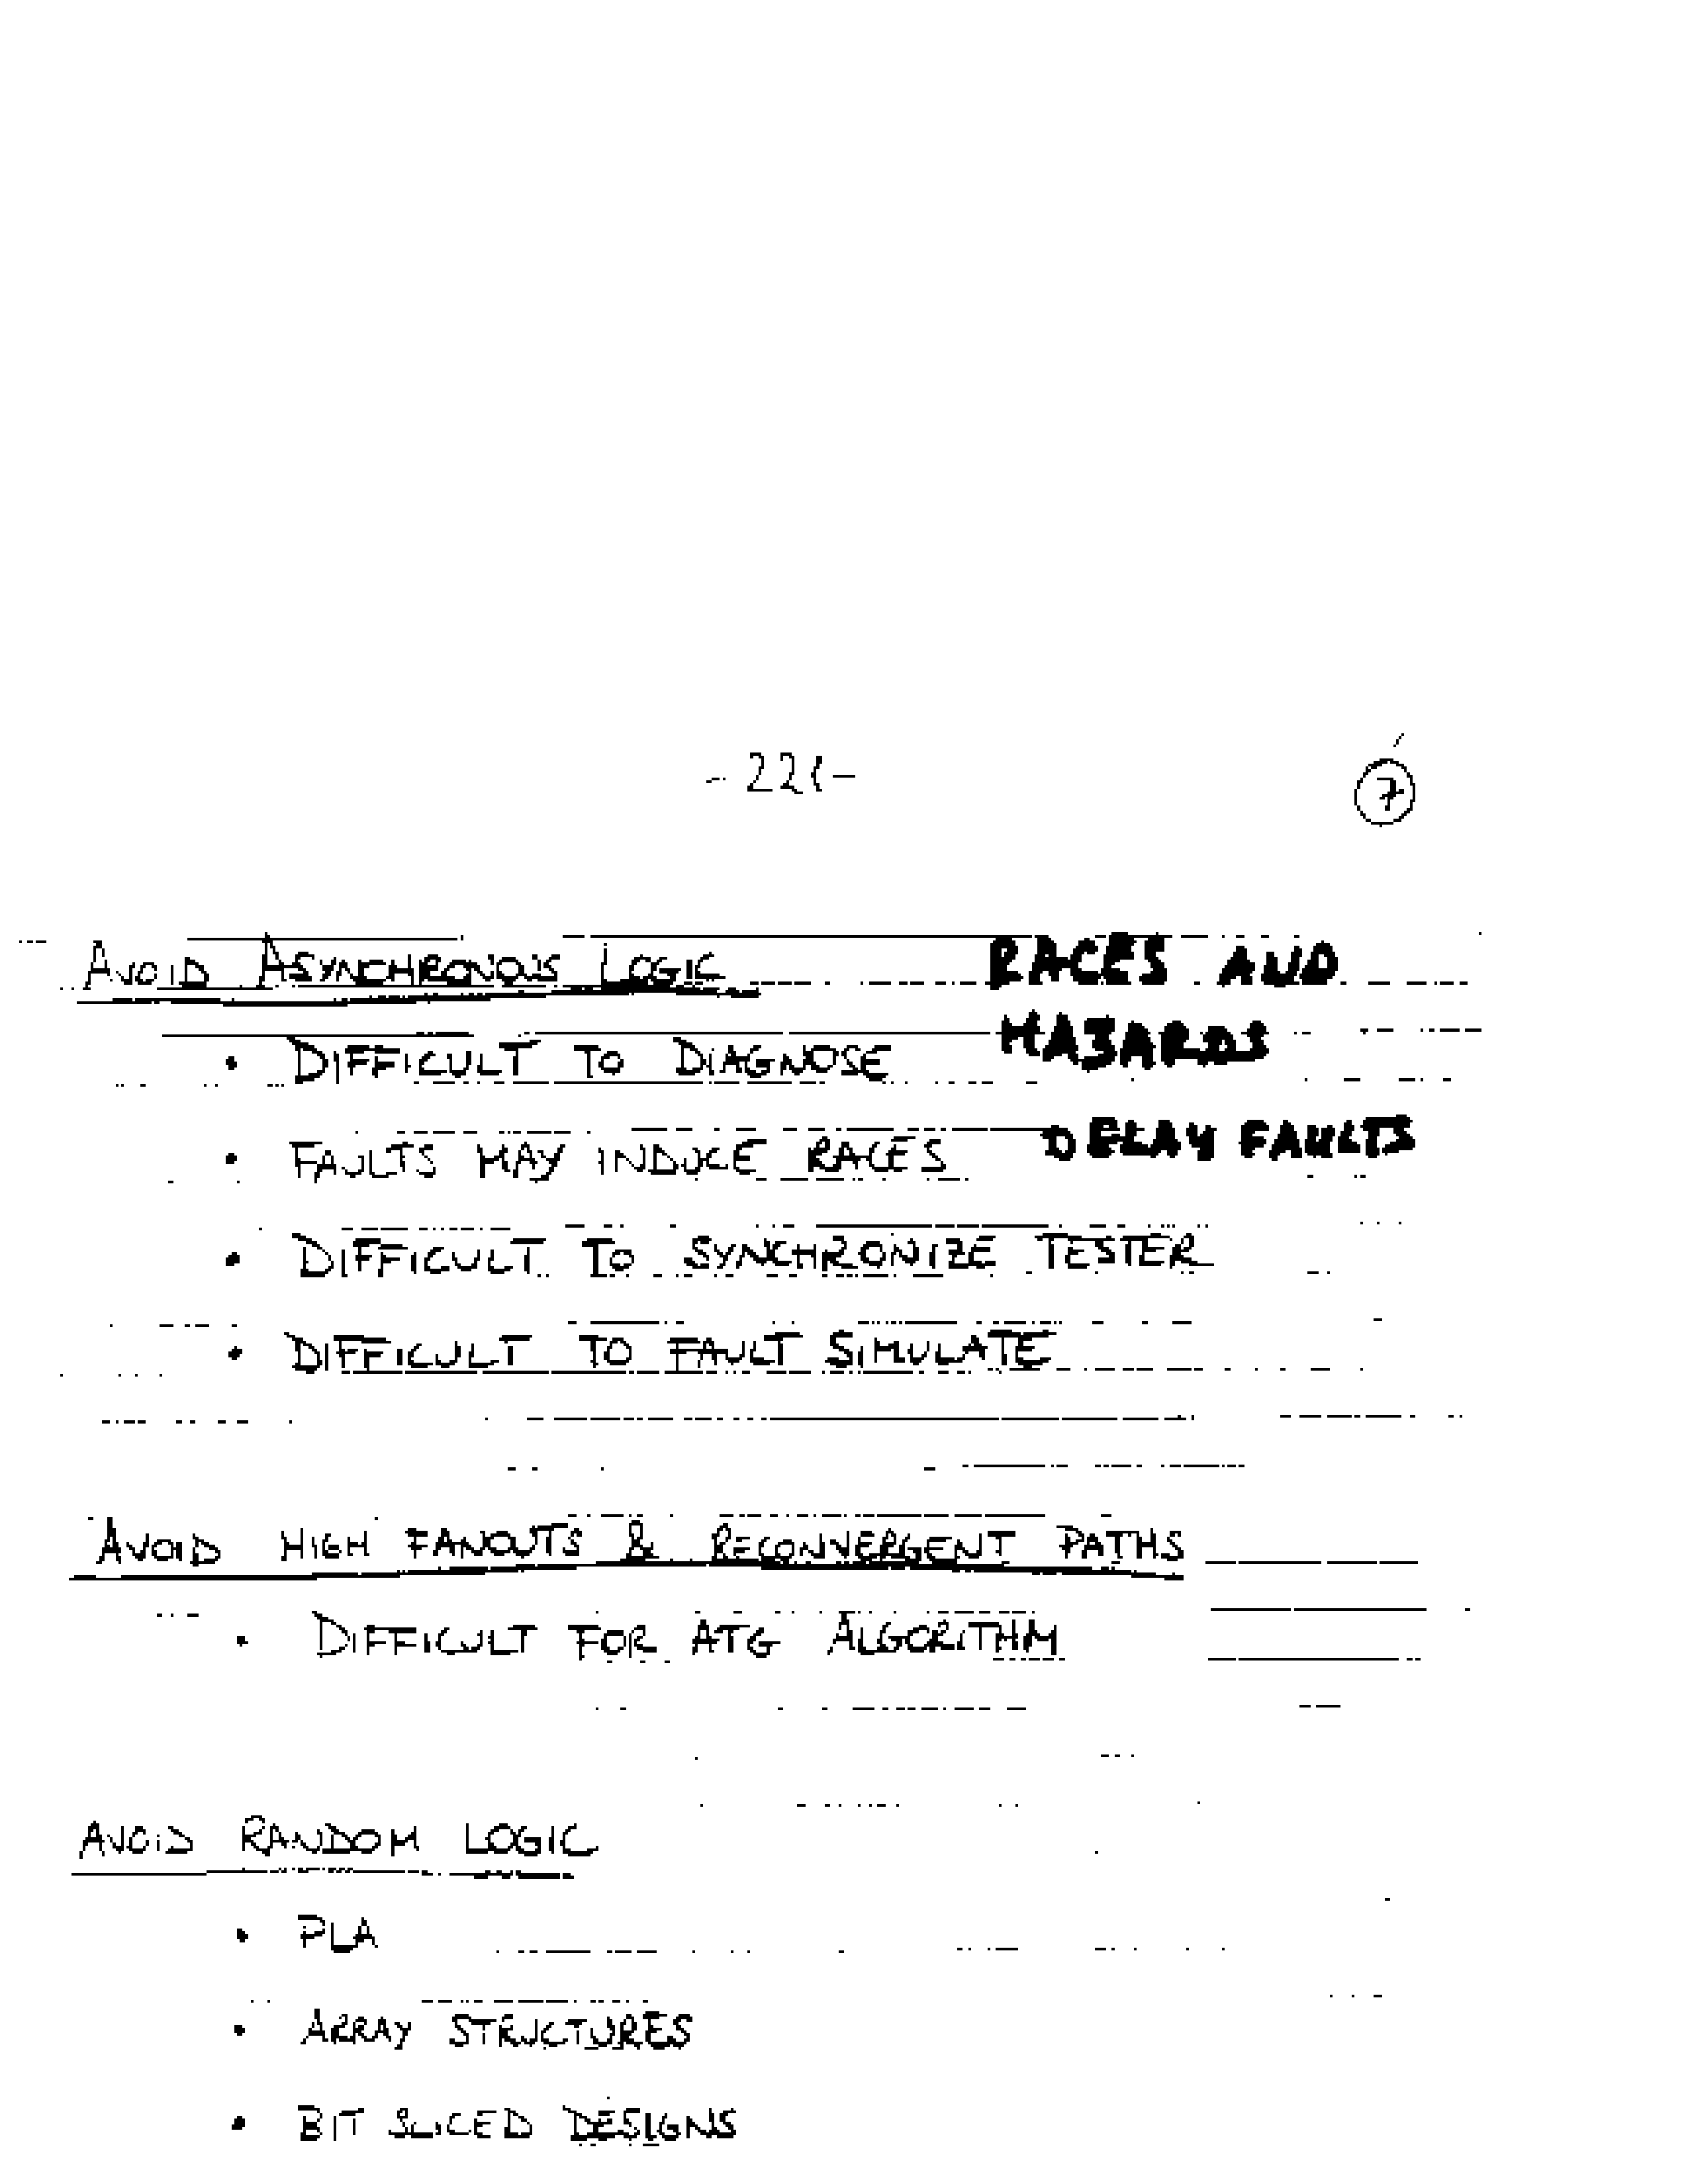 - 221 -
7
AVOID ASYNCHRONOUS LOGIC RACES AND
HAZARDS
• DIFFICULT TO DIAGNOSE
DELAY FAULTS
• FAULTS MAY INDUCE RACES
• DIFFICULT TO SYNCHRONIZE TESTER
• DIFFICULT TO FAULT SIMULATE
AVOID HIGH FANOUTS & RECONVERGENT PATHS
• DIFFICULT FOR ATG ALGORITHM
AVOID RANDOM LOGIC
• PLA
• ARRAY STRUCTURES
• BIT SLICED DESIGNS